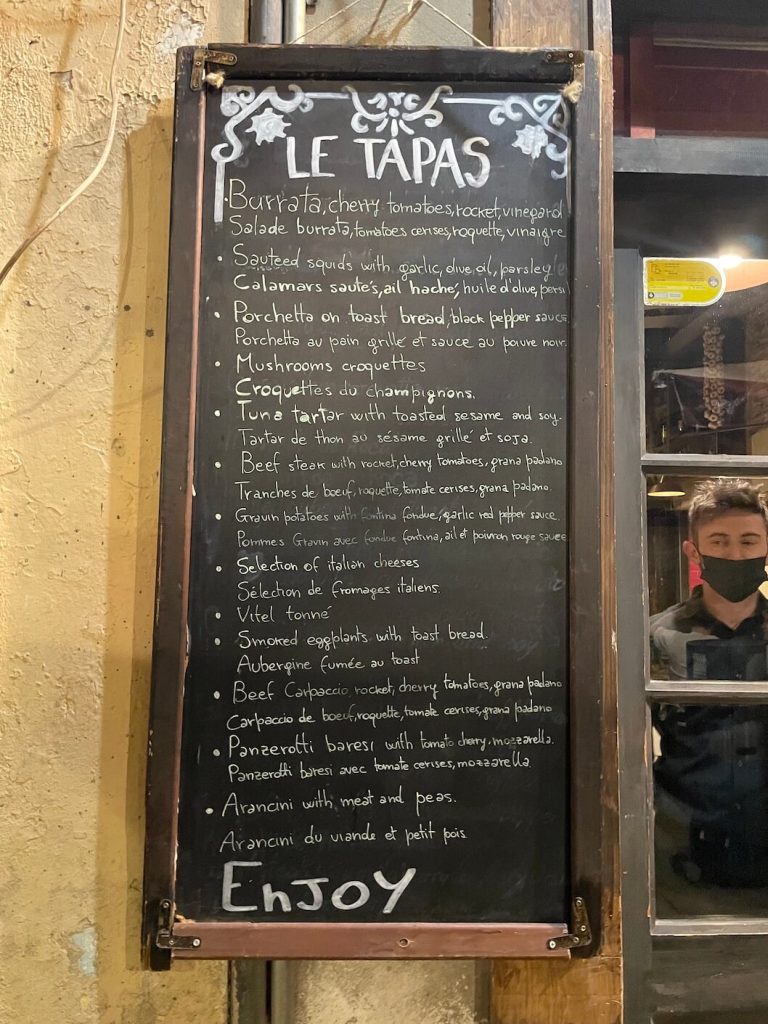 LE TAPAS
· Burrata, cherry tomatoes, rocket, vinegard
Salade burrata, tomates cerises, roquette, vinaigre
· Sauteed squids with garlic, olive oil, parsley
Calamars sautés, ail haché, huile d'olive, persi
· Porchetta on toast bread, black pepper sauce
Porchetta au pain grillé et sauce au poivre noir.
· Mushrooms croquettes
Croquettes du champignons.
· Tuna tartar with toasted sesame and soy.
Tartar de thon au sésame grillé et soja.
· Beef steak with rocket, cherry tomatoes, grana padano
Tranches de boeuf, roquette, tomate cerises, grana padano.
· Gravin potatoes with fontina fondue, garlic red pepper sauce.
Pommes Gravin avec fondue fontina, ail et poivron rouge sauce
· Selection of italian cheeses
Sélection de fromages italiens.
· Vitel tonné
· Smoked eggplants with toast bread.
Aubergine fumée au toast
· Beef Carpaccio, rocket, cherry tomatoes, grana padano
Carpaccio de boeuf, roquette, tomate cerises, grana padano
· Panzerotti baresi with tomato cherry, mozzarella.
Panzerotti baresi avec tomate cerises, mozzarella.
· Arancini with meat and peas.
Arancini du viande et petit pois
EnJOY